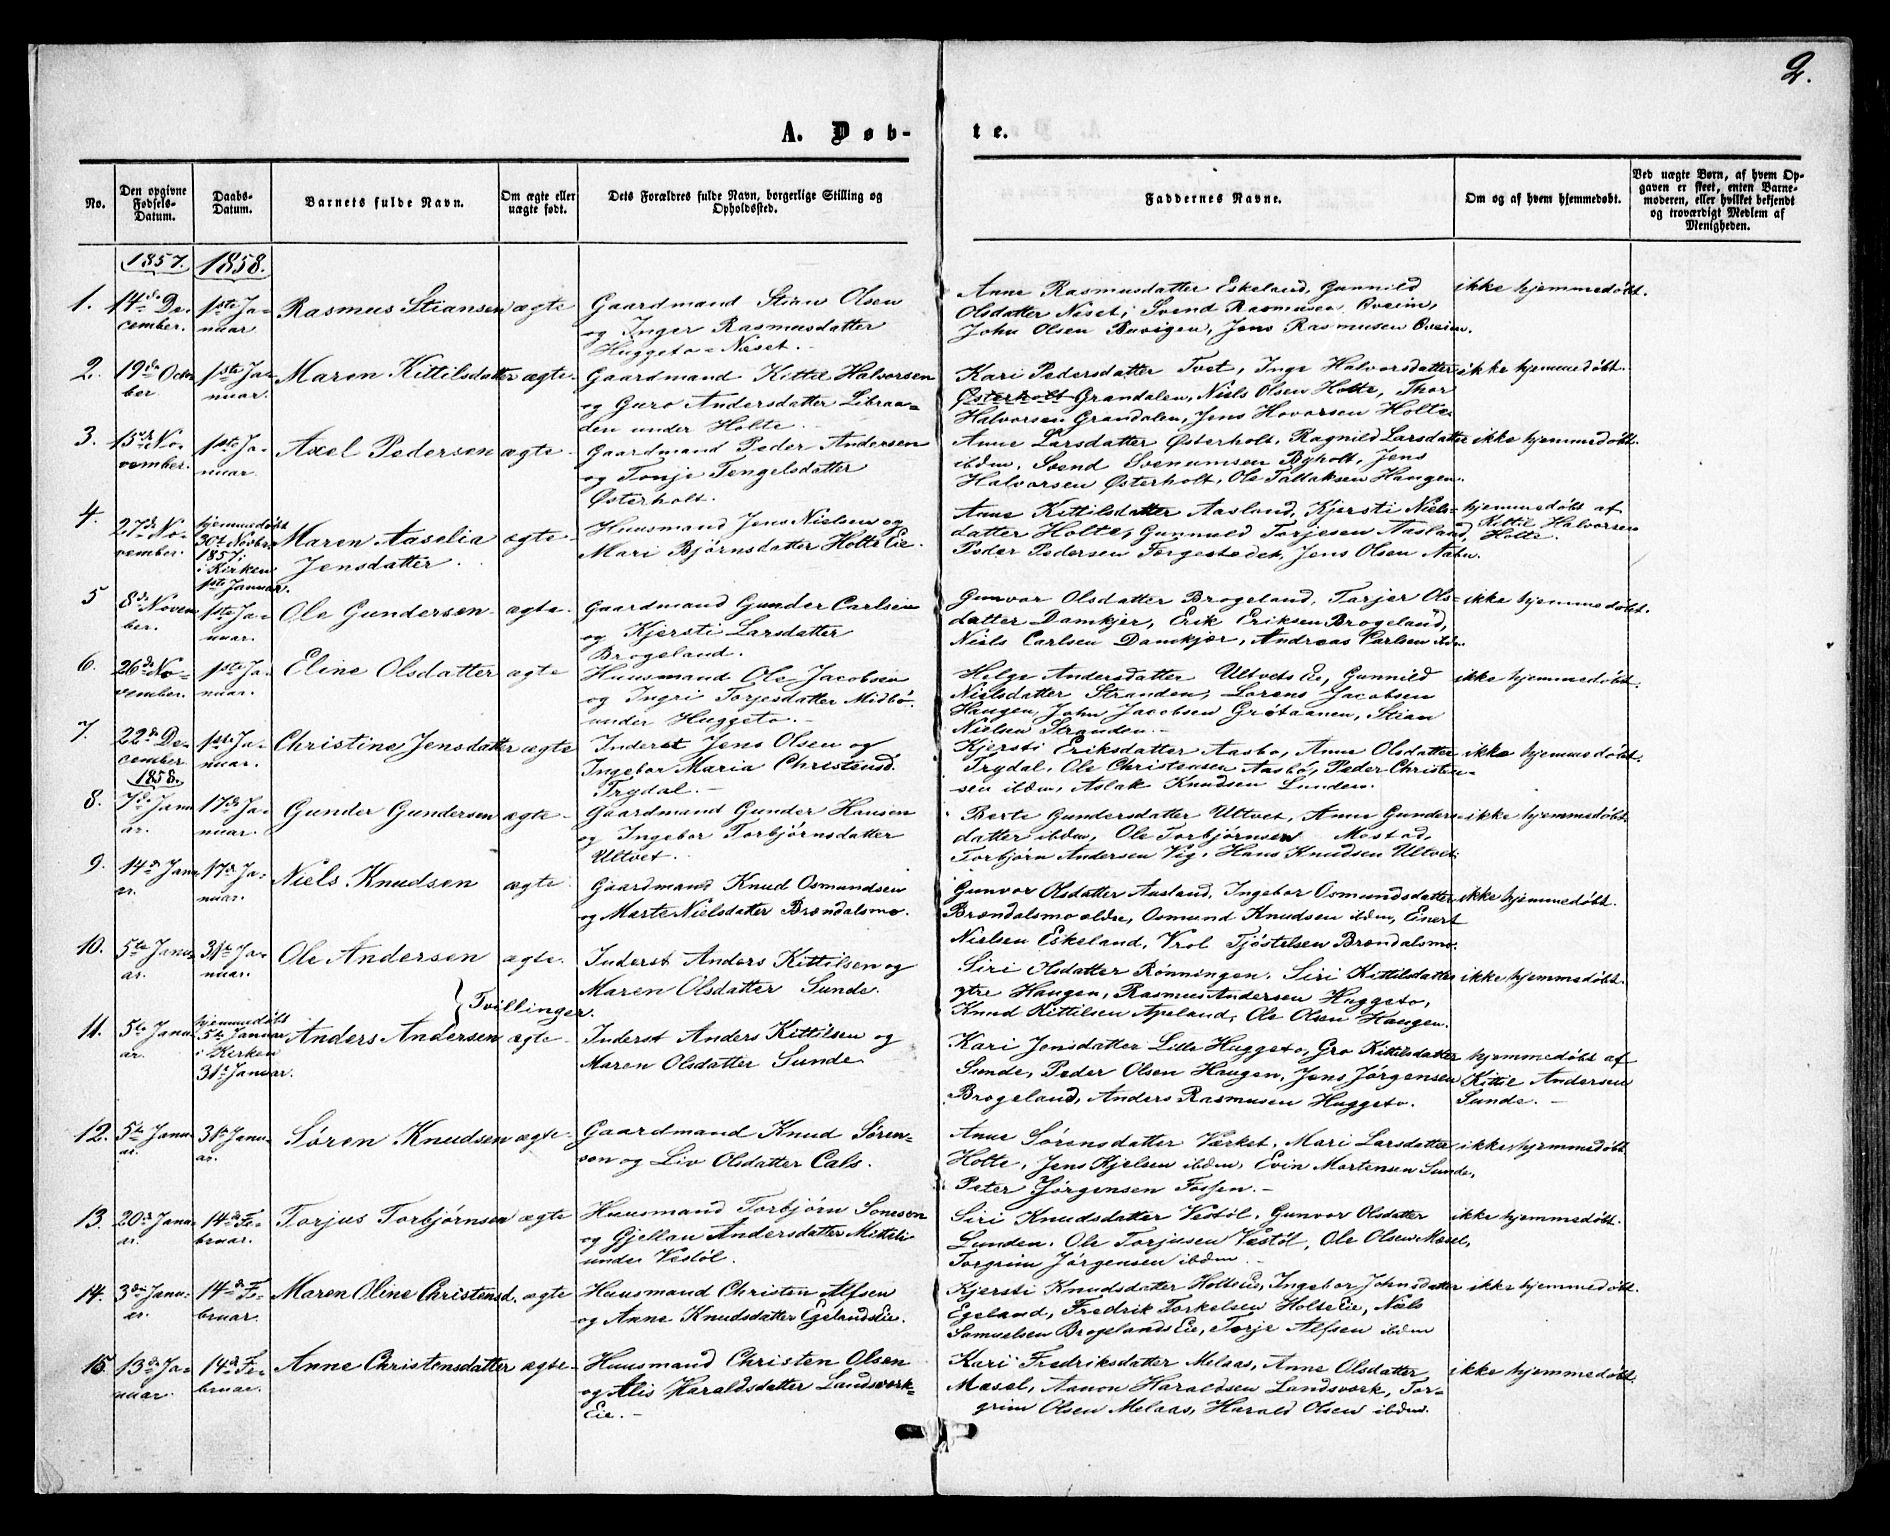 2.
A. Døb-
te.
No.
Den opgivne Fødsels-Datum.
Daabs-Datum.
Barnets fulde Navn.
Om ægte eller uægte født.
Dets Forældres fulde Navn, borgerlige Stilling og Opholdssted.
Faddernes Navne.
Om og af hvem hjemmedøbt.
Ved uægte Børn, af hvem Opgaven er skeet, enten Barnemoderen, eller hvilket bekjendt og troværdigt Medlem af Menigheden.
1857. 1858.
1. 14de De- 1ste Ja- Rasmus Stiansen ægte Gaardmand Stian Olsen
cember. nuar. og Inger Rasmusdatter
Huggeto-Neset.-
Anne Rasmusdatter Eskeland, Gunnild ikke hjemmedøbt.
Olsdatter Neset, Svend Rasmusen Oveim,
John Olsen Buvigen, Jens Rasmusen Oveim.
2. 19de Octo- 1ste Ja- Maren Kittilsdatter ægte- Gaardmand Kittil Halvorsen
ber nuar. og Guro Andersdatter Libraa-
den under Holte.
Kari Pedersdatter Tvet, Inge Halvorsdatter ikke hjemmedøbt.
Østerholt Grandalen, Niels Olsen Holte, Thor
Halvorsen Grandalen, Jens Hovorsen Holte.
3. 15de No- 1ste Ja- Axel Pedersen ægte- Gaardmand Peder Andersen
vember. nuar. og Tonje Tengelsdatter
Østerholt.
Anne Larsdatter Østerholt, Ragnild Larsdatter ikke hjemmedøbt.
ibdm, Svend Svenumsen Byholt, Jens
Halvorsen Østerholt, Ole Tallaksen Haugen.
4. 27de No- hjemmedøbt Maren Aaselia ægte- Huusmand Jens Nielsen og
vember. 30te Novbr. Jensdatter. Mari Bjørnsdatter Holte Eie.
1857.
i Kirken
1ste Januar.
Anne Kittilsdatter Aasland, Kjersti Niels- hjemmedøbt af
datter Holte, Gunnuld Torjesen Aasland, Kittil Halvorsen
Peder Pedersen Torgestedet, Jens Olsen Næbu. Holte.
5 8de Novem- 1ste Ja- Ole Gundersen ægte- Gaardmand Gunder Carlsen
ber. nuar. og Kjersti Larsdatter
Brogeland.
Gunvor Olsdatter Brogeland, Torjer Ols- ikke hjemmedøbt.
datter Damkjer, Erik Eriksen Brogeland,
Niels Carlsen Damkjær, Andreas Carlsen ibdm
6. 26de No- 1ste Ja- Eline Olsdatter ægte Huusmand Ole Jacobsen
vember. nuar. og Ingri Torjesdatter Midbø,
under Huggeto.-
Helge Andersdatter Ultvets Eie, Gunnild ikke hjemmedøbt.
Nielsdatter Stranden, Lorens Jacobsen
Haugen, John Jacobsen Grøtaanen, Stian
Nielsen Stranden.-
7. 22de De- 1ste Ja- Christine Jensdatter ægte Inderst Jens Olsen og
cember nuar. Ingebor Maria Christensd.
Trydal.-
Kjersti Eriksdatter Aasbo, Anne Olsdatter ikke hjemmedøbt.
Trydal, Ole Christensen Aasbø, Peder Christen-
sen ibdm, Aslak Knudsen Lunden.
1858.
8. 7de Janu- 17de Ja- Gunder Gundersen ægte- Gaardmand Gunder Hansen
ar. nuar. og Ingebor Torbjørnsdatter
Ultvet.
Berte Gundersdatter Ultvet, Anne Gunders- ikke hjemmedøbt.
datter ibdm, Ole Torbjørnsen Mostad,
Torbjørn Andersen Vig, Hans Knudsen Ultvet.
9. 14de Janu- 17de Ja- Niels Knudsen ægte Gaardmand Knud Osmundsen
ar. nuar. og Marte Nielsdatter Brændalsmo.
Gunvor Olsdatter Aasland, Ingebor Osmundsdatter ikke hjemmedøbt.
Brændalsmo ældre, Osmund Knudsen ibdm, Enert
Nielsen Eskeland, Vrol Tjøstelsen Brændalsmo.
10. 5te Janu- 31te Ja- Ole Andersen ægte- Inderst Anders Kittilsen og
ar. nuar. Maren Olsdatter Sunde.
Siri Olsdatter Rønningen, Siri Kittilsdatter ikke hjemmedøbt.
ytre Haugen, Rasmus Andersen Huggeto,
Knud Kittilsen Apeland, Ole Olsen Haugen.
} Tvillinger.
11. 5te Janu- hjemmedøbt Anders Andersen ægte- Inderst Anders Kittilsen og
ar. 5te Januar Maren Olsdatter Sunde
i Kirken
31te Januar.
Kari Jensdatter Lille Huggeto, Gro Kittilsdatter hjemmedøbt af
Sunde, Peder Olsen Haugen, Jens Jørgensen Kittil Andersen
Brogeland, Anders Rasmusen Huggeto. Sunde.-
12. 5te Janu- 31te Janu- Søren Knudsen ægte- Gaardmand Knud Søren-
ar. ar. sen og Liv Olsdatter Cals.
Anne Sørensdatter Værket, Mari Larsdatter ikke hjemmedøbt
Holte, Jens Kjelsen ibdm, Evin Mortensen Sunde,
Peter Jørgensen Fossen.-
13. 20de Janu- 14de Fe- Torjus Torbjørnsen ægte Huusmand Torbjørn Sonesen
ar. bruar. og Gjellau Andersdatter Mitteli
under Vestøl.
Siri Knudsdatter Vestøl, Gunvor Olsdatter ikke hjemmedøbt.
Lunden, Ole Torjusen Vestøl, Ole Olsen Mæsel,
Torgrim Jørgensen ibdm.-
14. 3die Janu- 14de Fe- Maren Oline Christensd. ægte Huusmand Christen Alfsen
ar. bruar. og Anne Knudsdatter Egelands Eie.
Kjersti Knudsdatter Holte Eie, Ingebor Johnsdatter ikke hjemmedøbt.
Egeland, Fredrik Torkelsen Holte Eie, Niels
Samuelsen Brogelands Eie, Torje Alfsen ibdm
15. 13de Ja- 14de Fe- Anne Christensdatter ægte- Huusmand Christen Olsen
nuar. bruar. og Alis Haraldsdatter Landsverk-
Eie.-
Kari Fredriksdatter Melaas, Anne Olsdatter ikke hjemmedøbt.
Mæsel, Aanon Haraldsen Landsverk, Tor-
grim Olsen Melaas, Harald Olsen ibdm.